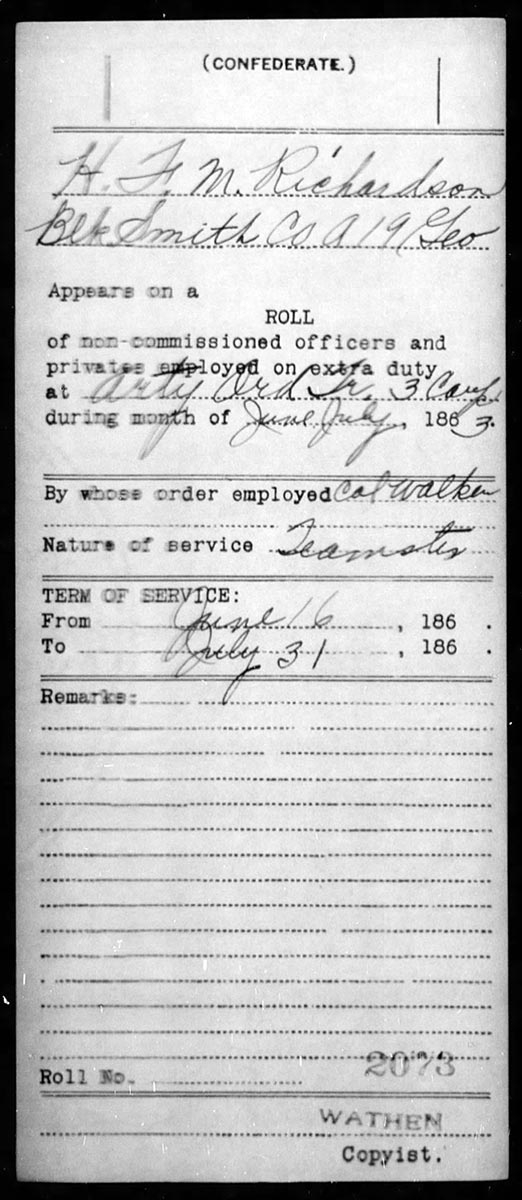 (CONFEDERATE.)
H. F. M. Richardson
Blk Smith Co A 19 Geo
Appears on a
ROLL
of non-commissioned officers and
privates employed on extra duty
at Arty Ord Tr. 3 Corps
during month of June July, 1863.
By whose order employed Col Walker
Nature of service Teamster
TERM OF SERVICE:
From June 16, 186 .
To July 31, 186 .
Remarks:
Roll No. 2073
WATHEN
Copyist.